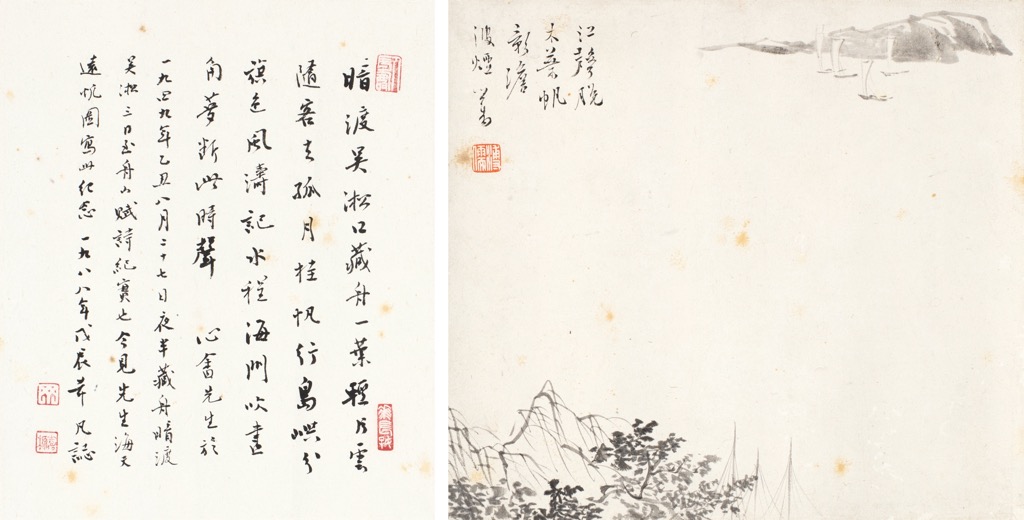 暗渡吳淞口藏舟一葉輕片雲
隨客去孤月桂帆行島嶼分
旗色風濤記水程海門吹畫
角夢斷此時聲 心畬先生於
一九四九年乙丑八月二十七日夜半藏舟暗渡
吳淞三日至舟山賦詩紀實也今見先生海天
遠帆圖寫此紀念 一九八八年戊辰 凡誌
江聲脫
木葉帆
影澹
波煙 心畬